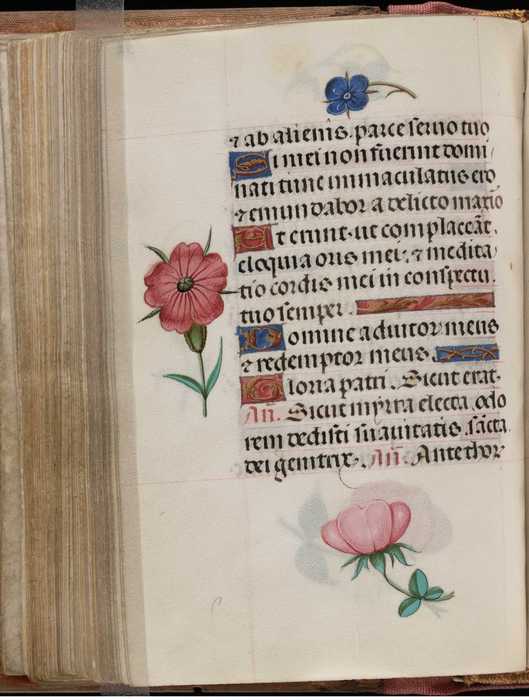 ⁊ ab alienis. parce seruo tuo
Si mei non fuerint domi
nati tunc immaculatus ero
⁊ emundabor a delicto maxio
Et erunt ut complaceāt.
eloquia oris mei. ⁊ medita
tio cordis mei in conspectu.
tuo semper.
Domine adiutor meus
⁊ redemptor meus.
Gloria patri. Sicut erat.
An̄. Sicut myrra electa odo
rem dedisti suauitatis. sācta
dei genitrix. An̄. Ante thor